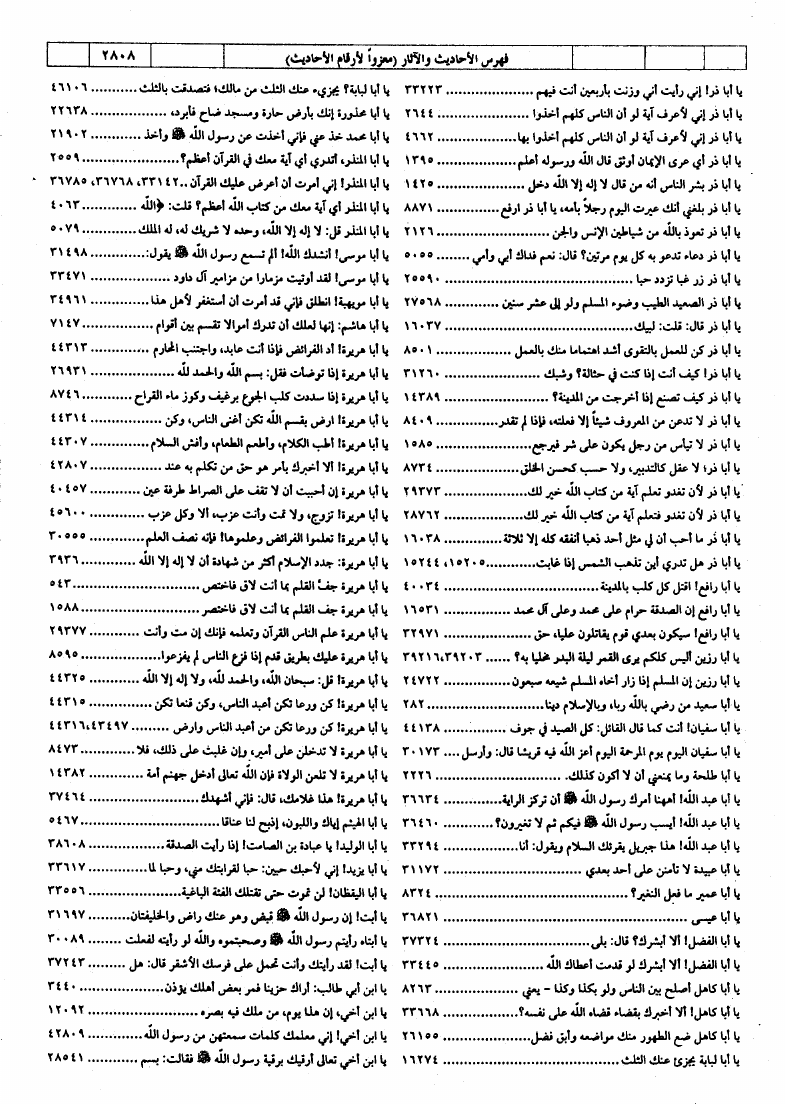 فهرس الأحاديث والآثار (معزواً لأرقام الأحاديث)
٢٨٠٨
يا أبا ذر! إني رأيت أني وزنت بأربعين أنت فيهم .......... ٣٣٢٢٣
يا أبا ذر إني لأعرف آية لو أن الناس كلهم أخذوا .......... ٢٦٤٤
يا أبا ذر إني لأعرف آية لو أن الناس كلهم أخذوا بها .......... ٤٦٦٢
يا أبا ذر أي عرى الإيمان أوثق قال الله ورسوله أعلم .......... ١٣٩٥
يا أبا ذر بشر الناس أنه من قال لا إله إلا الله دخل .......... ١٤٢٥
يا أبا ذر بلغني أنك عيرت اليوم رجلاً بأمه، يا أبا ذر ارفع .......... ٨٨٧١
يا أبا ذر تعوذ بالله من شياطين الإنس والجن .......... ٢١٢٦
يا أبا ذر دعاء تدعو به كل يوم مرتين؟ قال: نعم فداك أبي وأمي .......... ٥٠٥٥
يا أبا ذر زر غبا تزدد حبا .......... ٢٥٥٩٠
يا أبا ذر الصعيد الطيب وضوء المسلم ولو إلى عشر سنين .......... ٢٧٥٦٨
يا أبا ذر قال: قلت: لبيك .......... ١٦٠٣٧
يا أبا ذر كن للعمل بالتقوى أشد اهتماما منك بالعمل .......... ٨٥٠١
يا أبا ذر! كيف أنت إذا كنت في حثالة؟ وشبك .......... ٣١٢٦٠
يا أبا ذر كيف تصنع إذا أخرجت من المدينة؟ .......... ١٤٣٨٩
يا أبا ذر لا تدعن من المعروف شيئاً إلا فعلته، فإذا لم تقدر .......... ٨٤٠٩
يا أبا ذر لا تيأس من رجل يكون على شر فيرجع .......... ١٥٨٥
يا أبا ذر؛ لا عقل كالتدبير، ولا حسب كحسن الخلق .......... ٨٧٣٤
يا أبا ذر لأن تغدو تعلم آية من كتاب الله خير لك .......... ٢٩٣٧٣
يا أبا ذر لأن تغدو فتعلم آية من كتاب الله خير لك .......... ٢٨٧٦٢
يا أبا ذر ما أحب أن لي مثل أحد ذهبا أنفقه كله إلا ثلاثة .......... ١٦٠٣٨
يا أبا ذر هل تدري أين تذهب الشمس إذا غابت .......... ١٥٢٠٥، ١٥٢٤٤
يا أبا رافع! اقتل كل كلب بالمدينة .......... ٤٠٠٣٤
يا أبا رافع إن الصدقة حرام على محمد وعلى آل محمد .......... ١٦٥٣١
يا أبا رافع! سيكون بعدي قوم يقاتلون عليا، حق .......... ٣٢٩٧١
يا أبا رزين أليس كلكم يرى القمر ليلة البدر مخليا به؟ ...... ٣٩٢٠٣، ٣٩٢١٦
يا أبا رزين إن المسلم إذا زار أخاه المسلم شيعه سبعون .......... ٢٤٧٢٢
يا أبا سعيد من رضي بالله ربا، وبالإسلام دينا .......... ٢٨٢
يا أبا سفيان! أنت كما قال القائل: كل الصيد في جوف .......... ٤٤١٣٨
يا أبا سفيان اليوم يوم المرحمة اليوم أعز الله فيه قريشا قال: وأرسل .... ٣٠١٧٣
يا أبا طلحة وما يمنعني أن لا أكون كذلك. .......... ٢٢٢٦
يا أبا عبد الله! أههنا أمرك رسول الله ﷺ أن تركز الراية .......... ٣٦٦٣٤
يا أبا عبد الله! أيسب رسول الله ﷺ فيكم ثم لا تغيرون؟ .......... ٣٦٤٦٠
يا أبا عبد الله! هذا جبريل يقرئك السلام ويقول: أنا .......... ٣٣٢٩٤
يا أبا عبيدة لا تأمنن على أحد بعدي .......... ٣١١٧٢
يا أبا عمير ما فعل النغير؟ .......... ٨٣٢٤
يا أبا عيسى .......... ٣٦٨٢١
يا أبا الفضل! ألا أبشرك؟ قال: بلى .......... ٣٧٣٢٤
يا أبا الفضل! ألا أبشرك لو قدمت أعطاك الله .......... ٣٣٤٤٥
يا أبا كاهل أصلح بين الناس ولو بكذا وكذا - يعني .......... ٨٢٦٣
يا أبا كاهل! ألا أخبرك بقضاء قضاه الله على نفسه؟ .......... ٣٣٦٦٨
يا أبا كاهل ضع الطهور منك مواضعه وأبق فضل .......... ٢٦١٥٥
يا أبا لبابة يجزئ عنك الثلث .......... ١٦٢٧٤
يا أبا لبابة؟ يجزىء عنك الثلث من مالك؛ فتصدقت بالثلث ...... ٤٦١٠٦
يا أبا محذورة إنك بأرض حارة ومسجد ضاح فأبرد، .......... ٢٢٦٣٨
يا أبا محمد خذ عني فإني أخذت عن رسول الله ﷺ وأخذ .......... ٢١٩٠٢
يا أبا المنذر، أتدري أي آية معك في القرآن أعظم؟ .......... ٢٥٥٩
يا أبا المنذر! إني أمرت أن أعرض عليك القرآن ...٣٣١٤٢، ٣٦٧٦٨، ٣٦٧٨٥
يا أبا المنذر أي آية معك من كتاب الله أعظم؟ قلت: ﴿الله .......... ٤٠٦٣
يا أبا المنذر قل: لا إله إلا الله، وحده لا شريك له، له الملك .......... ٥٠٧٩
يا أبا موسى! أنشدك الله! ألم تسمع رسول الله ﷺ يقول: .......... ٣١٤٩٨
يا أبا موسى! لقد أوتيت مزمارا من مزامير آل داود .......... ٣٣٤٧١
يا أبا مويهبة! انطلق فإني قد امرت أن أستغفر لأهل هذا .......... ٣٤٩٦١
يا أبا هاشم: إنها لعلك أن تدرك أموالا تقسم بين أقوام .......... ٧١٤٧
يا أبا هريرة! أد الفرائض فإذا أنت عابد، واجتنب المحارم .......... ٤٤٣١٣
يا أبا هريرة إذا توضأت فقل: بسم الله والحمد لله .......... ٢٦٩٣١
يا أبا هريرة؟ إذا سددت كلب الجوع برغيف وكوز ماء القراح .......... ٨٧٤٦
يا أبا هريرة! ارض بقسم الله تكن أغنى الناس، وكن .......... ٤٤٣١٤
يا أبا هريرة! أطب الكلام، وأطعم الطعام، وأفش السلام .......... ٤٤٣٠٧
يا أبا هريرة! ألا أخبرك بأمر هو حق من تكلم به عند .......... ٤٢٨٠٧
يا أبا هريرة إن أحببت أن لا تقف على الصراط طرفة عين .......... ٤٠٤٥٧
يا أبا هريرة! تزوج، ولا تمت وأنت عزب، ألا وكل عزب .......... ٤٥٦٠٠
يا أبا هريرة! تعلموا الفرائض وعلموها! فإنه نصف العلم .......... ٣٠٥٥٥
يا أبا هريرة: جدد الإسلام أكثر من شهادة أن لا إله إلا الله .......... ٣٩٣٦
يا أبا هريرة: جف القلم بما أنت لاق فاختص .......... ٥٤٣
يا أبا هريرة جف القلم بما أنت لاق فاختصر .......... ١٥٨٨
يا أبا هريرة علم الناس القرآن وتعلمه فإنك إن مت وأنت .......... ٢٩٣٧٧
يا أبا هريرة عليك بطريق قدم إذا فزع الناس لم يفزعوا .......... ٨٥٩٥
يا أبا هريرة! قل: سبحان الله، والحمد لله، ولا إله إلا الله .......... ٤٤٣٢٥
يا أبا هريرة! كن ورعا تكن أعبد الناس، وكن قنعا تكن .......... ٤٤٣١٥
يا أبا هريرة! كن ورعا تكن من أعبد الناس وارض .......... ٤٣٤٩٧، ٤٤٣١٦
يا أبا هريرة لا تدخلن على أمير، وإن غلبت على ذلك، فلا .......... ٨٤٧٣
يا أبا هريرة لا تلعن الولاة فإن الله تعالى أدخل جهنم أمة .......... ١٤٣٨٢
يا أبا هريرة! هذا غلامك، قال: فإني أشهدك .......... ٣٧٤٦٤
يا أبا الهيثم إياك واللبون، إذبح لنا عناقا .......... ٥٤٦٧
يا أبا الوليد! يا عبادة بن الصامت! إذا رأيت الصدقة .......... ٣٨٦٠٨
يا أبا يزيد! إني لأحبك حبين: حبا لقرابتك مني، وحبا لما .......... ٣٣٦١٧
يا أبا اليقظان! لن تموت حتى تقتلك الفئة الباغية .......... ٣٣٥٥٦
يا أبت! إن رسول الله ﷺ قبض وهو عنك راض والخليفتان .......... ٣١٦٩٧
يا أبتاه رأيتم رسول الله ﷺ وصحبتموه والله لو رأيته لفعلت ........ ٣٠٠٨٩
يا أبت! لقد رأيتك وأنت تحمل على فرسك الأشقر قال: هل ........ ٣٧٢٤٣
يا ابن أبي طالب: أراك حزينا فمر بعض أهلك يؤذن .......... ٣٤٤٠
يا ابن أخي، إن هذا يوم، من ملك فيه بصره .......... ١٢٠٩٢
يا ابن أخي! إني معلمك كلمات سمعتهن من رسول الله .......... ٤٢٨٠٩
يا ابن أخي تعالى أرقيك برقية رسول الله ﷺ فقالت: بسم .......... ٢٨٥٤١